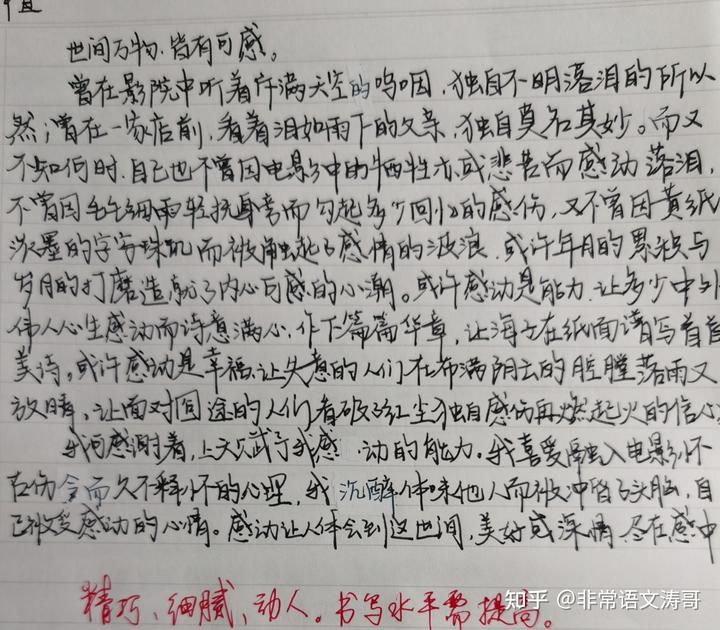 值
世间万物,皆有可感。
曾在影院中听着斥满天空的呜咽,独自不明落泪的所以
然;曾在一家店前,看着泪如雨下的父亲,独自莫名其妙。而又
不知何时,自己也不曾因电影中的牺牲亦或悲苦而感动落泪,
不曾因毛毛细雨轻抚耳旁而勾起多少回忆的感伤,又不曾因黄纸
淡墨的字字珠玑而被触起了感情的波浪,或许年月的累积与
岁月的打磨造就了内心可感的心潮。或许感动是能力,让多少中外
伟人心生感动而诗意满心,作下篇篇华章,让海子在纸面谱写首首
美诗。或许感动是幸福,让失意的人们在布满阴云的胸膛落雨又
放晴,让面对回途的人们看破了红尘独自感伤再燃起火的信心
我可感谢着,上天赋予我感动的能力。我喜爱融入电影怀
古伤今而久不释怀的心理,我沉醉体味他人而被冲昏了头脑,自
己被受感动的心情。感动让人体会到这世间,美好或深情,尽在感中
精巧、细腻、动人。书写水平需提高。
知乎 @非常语文涛哥